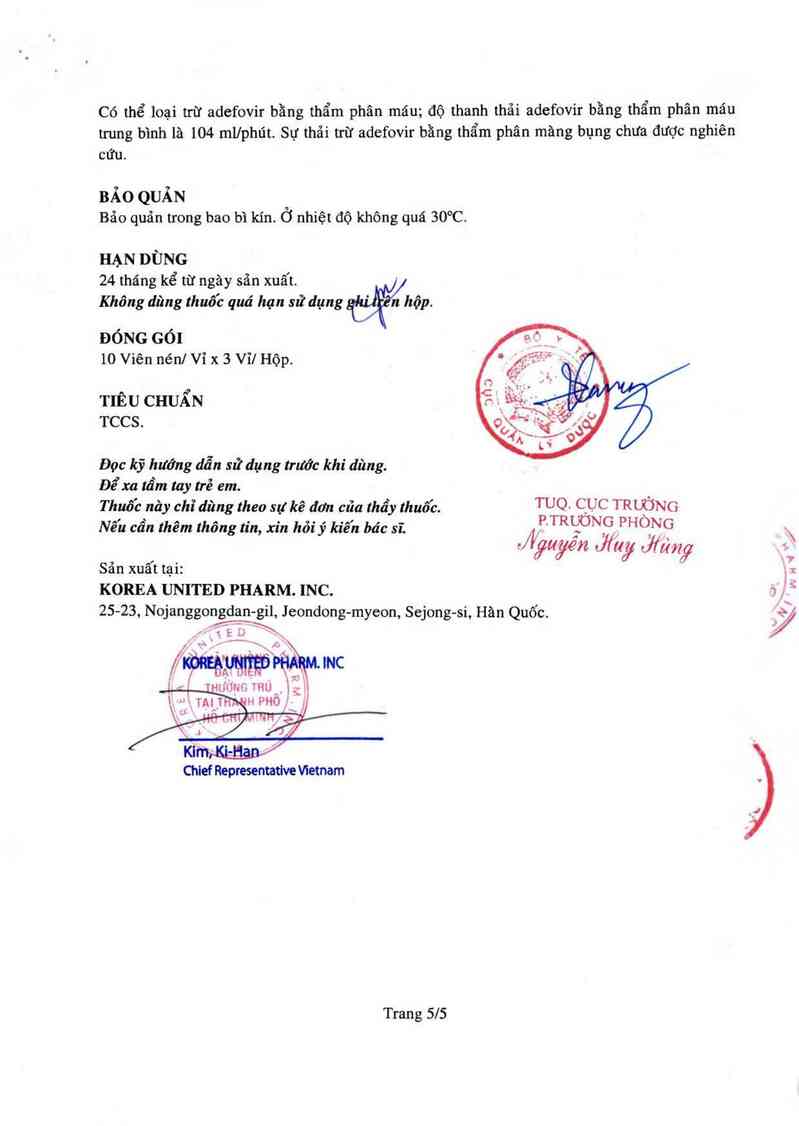 Có thể loại trừ adefovir bằng thẩm phân máu; độ thanh thải adefovir bằng thẩm phân máu
trung bình là 104 ml/phút. Sự thải trừ adefovir bằng thẩm phân màng bụng chưa được nghiên
cứu.
BẢO QUẢN
Bảo quản trong bao bì kín. Ở nhiệt độ không quá 30°C.
HẠN DÙNG
24 tháng kể từ ngày sản xuất.
Không dùng thuốc quá hạn sử dụng ghi trên hộp.
ĐÓNG GÓI
10 Viên nén/ Vỉ x 3 Vỉ/ Hộp.
TIÊU CHUẨN
TCCS.
BỘ Y TẾ
CỤC QUẢN LÝ DƯỢC
Đọc kỹ hướng dẫn sử dụng trước khi dùng.
Để xa tầm tay trẻ em.
Thuốc này chỉ dùng theo sự kê đơn của thầy thuốc.
Nếu cần thêm thông tin, xin hỏi ý kiến bác sĩ.
TUQ. CỤC TRƯỞNG
P.TRƯỞNG PHÒNG
Nguyễn Huy Hùng
Sản xuất tại:
KOREA UNITED PHARM. INC.
25-23, Nojanggongdan-gil, Jeondong-myeon, Sejong-si, Hàn Quốc.
KOREA UNITED PHARM. INC
KOREA UNITED PHARM. INC
ĐẠI DIỆN
THƯỜNG TRÚ
TẠI THÀNH PHỐ
HỒ CHÍ MINH
Kim, Ki-Han
Chief Representative Vietnam
Trang 5/5